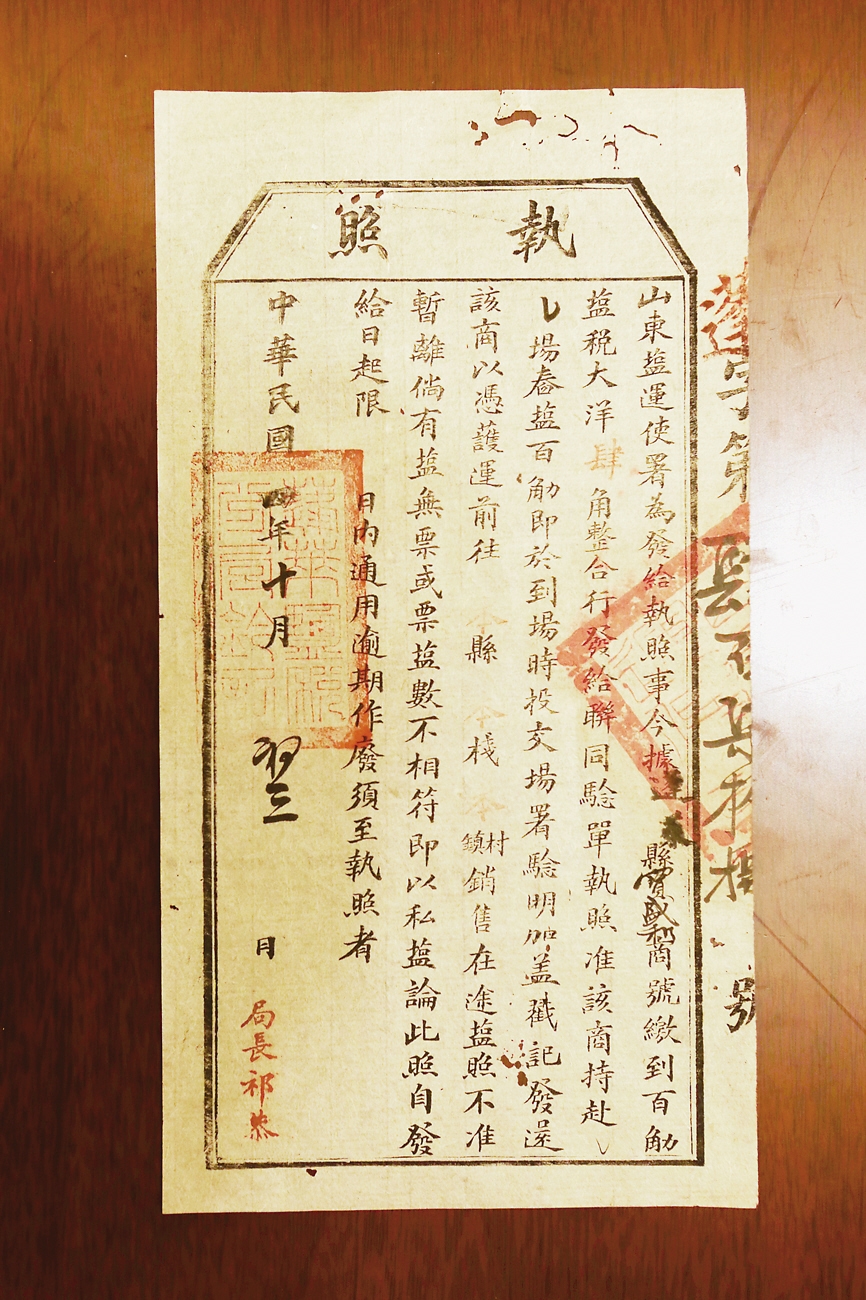 執照
字第肆百
號
山東塩運使署為發給執照事今據蓬萊縣寶盛和商號繳到百觔
塩税大洋肆角整合行發給聯同驗單執照准該商持赴
場舂塩百觔即於到場時投交場署驗明加盖戳記發還
該商以憑護運前往 縣 棧 鎮村銷售在途塩照不准
暫離倘有塩無票或票塩數不相符即以私塩論此照自發
給日起限 日内通用逾期作廢須至執照者
中華民國四年十月 日
局長祁